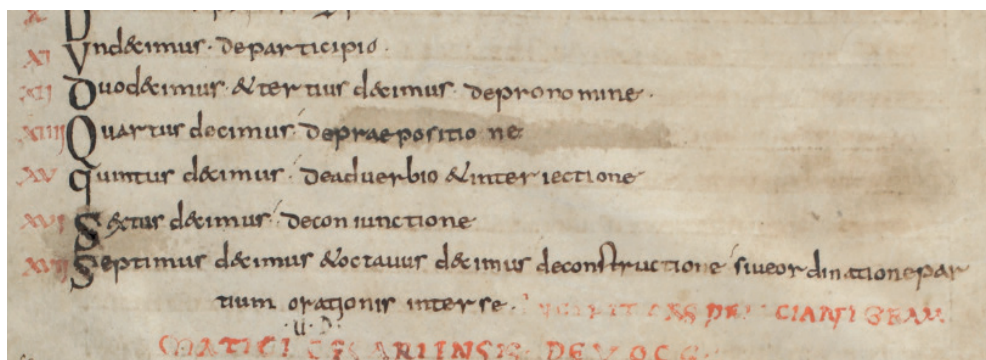 XI Vndecimus · departicipio ·
XII Duodecimus · & tertius decimus · depronomine ·
XIIII Quartus decimus · depraepositione
XV quintus decimus · deaduerbio & interiectione
XVI Sextus decimus · deconiunctione
XVII Septimus decimus & octauus decimus deconstructione siue ordinatione par
tium orationis inter se ·
CIANI GRAM
MATICI CESARIENSIS DE VOCE